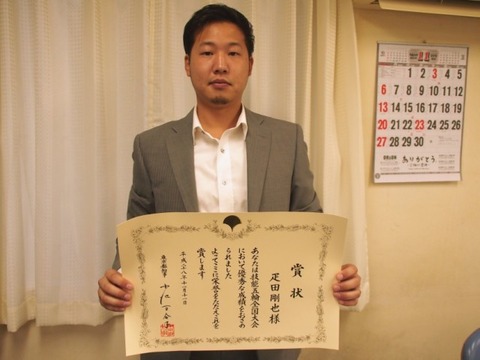 賞状
疋田剛也様
あなたは技能五輪全国大会
において優秀な成績をおさめ
られました
よってここに栄誉をたたえこれを
賞します
平成二八年十一月十一日
東京都知事
小池百合子
11
1 2 3 4 5
6 7 8 9 10 11 12
13 14 15 16 17 18 19
20 21 22 23 24 25 26
27 28 29 30
ありがとう